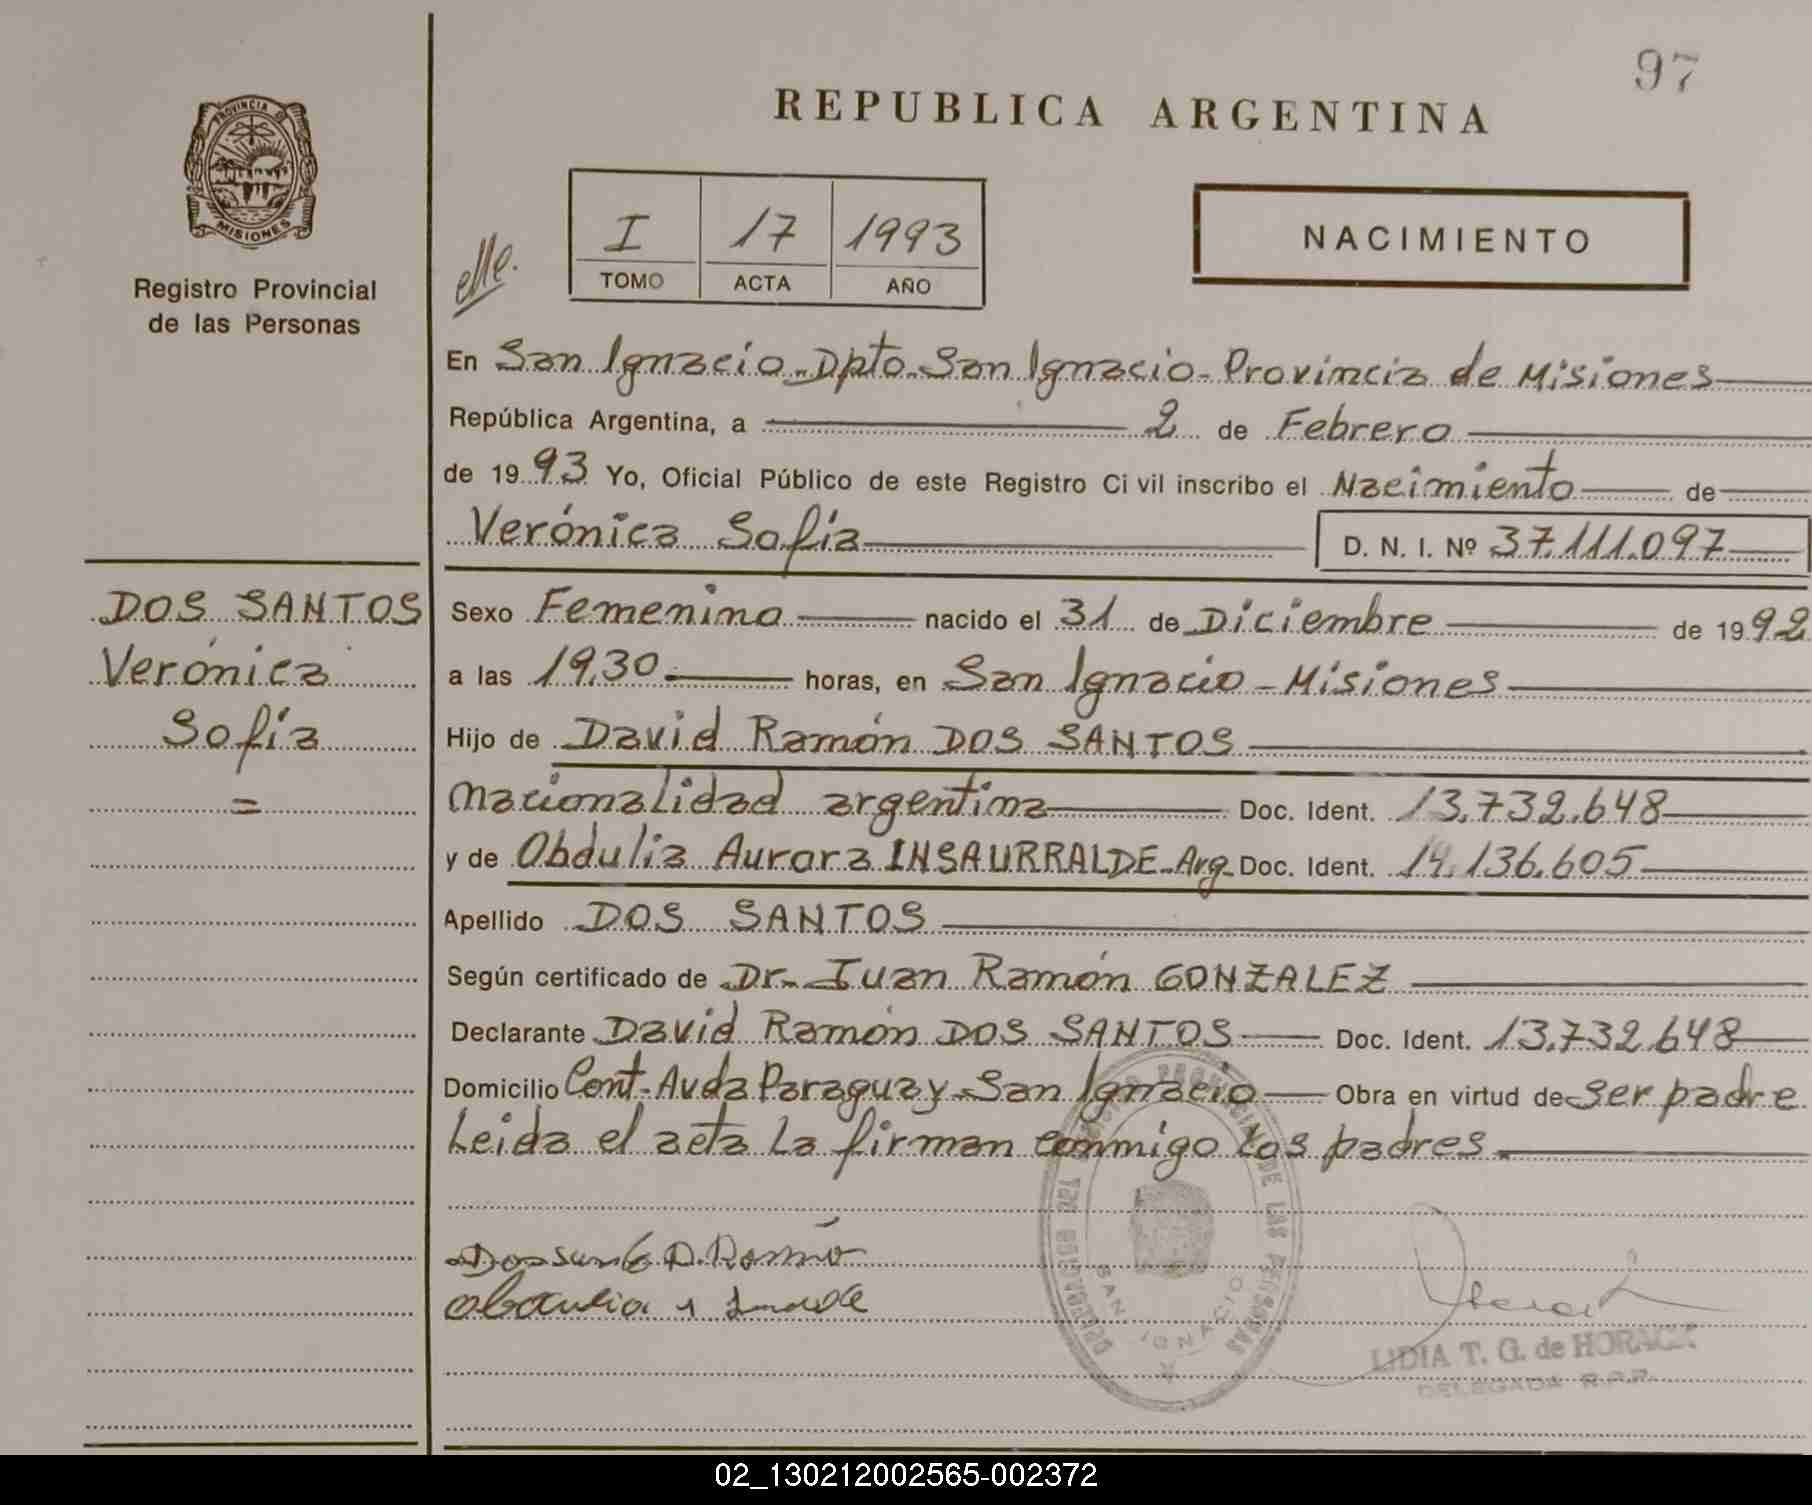 97
REPUBLICA ARGENTINA
PROVINCIA DE
MISIONES
Registro Provincial
de las Personas
I 17 1993
TOMO ACTA AÑO
NACIMIENTO
En San Ignacio - Dpto. San Ignacio - Provincia de Misiones
República Argentina, a 2 de Febrero
de 1993 Yo, Oficial Público de este Registro Civil inscribo el Nacimiento de
Verónica Sofía D. N. I. Nº 37.111.097
DOS SANTOS
Verónica
Sofía
=
Sexo Femenino nacido el 31 de Diciembre de 1992
a las 19.30 horas, en San Ignacio - Misiones
Hijo de David Ramón DOS SANTOS
nacionalidad argentina Doc. Ident. 13.732.648
y de Obdulia Aurora INSAURRALDE - Arg. Doc. Ident. 14.136.605
Apellido DOS SANTOS
Según certificado de Dr. Juan Ramón GONZALEZ
Declarante David Ramón DOS SANTOS Doc. Ident. 13.732.648
Domicilio Cont. Avda Paraguay - San Ignacio Obra en virtud de ser padre
Leida el acta la firman conmigo los padres
PROVINCIAL DE LAS PERSONAS
DELEGACION
SAN IGNACIO
LIDIA T. G. de HORACK
DELEGADA R.P.P.
02_130212002565-002372